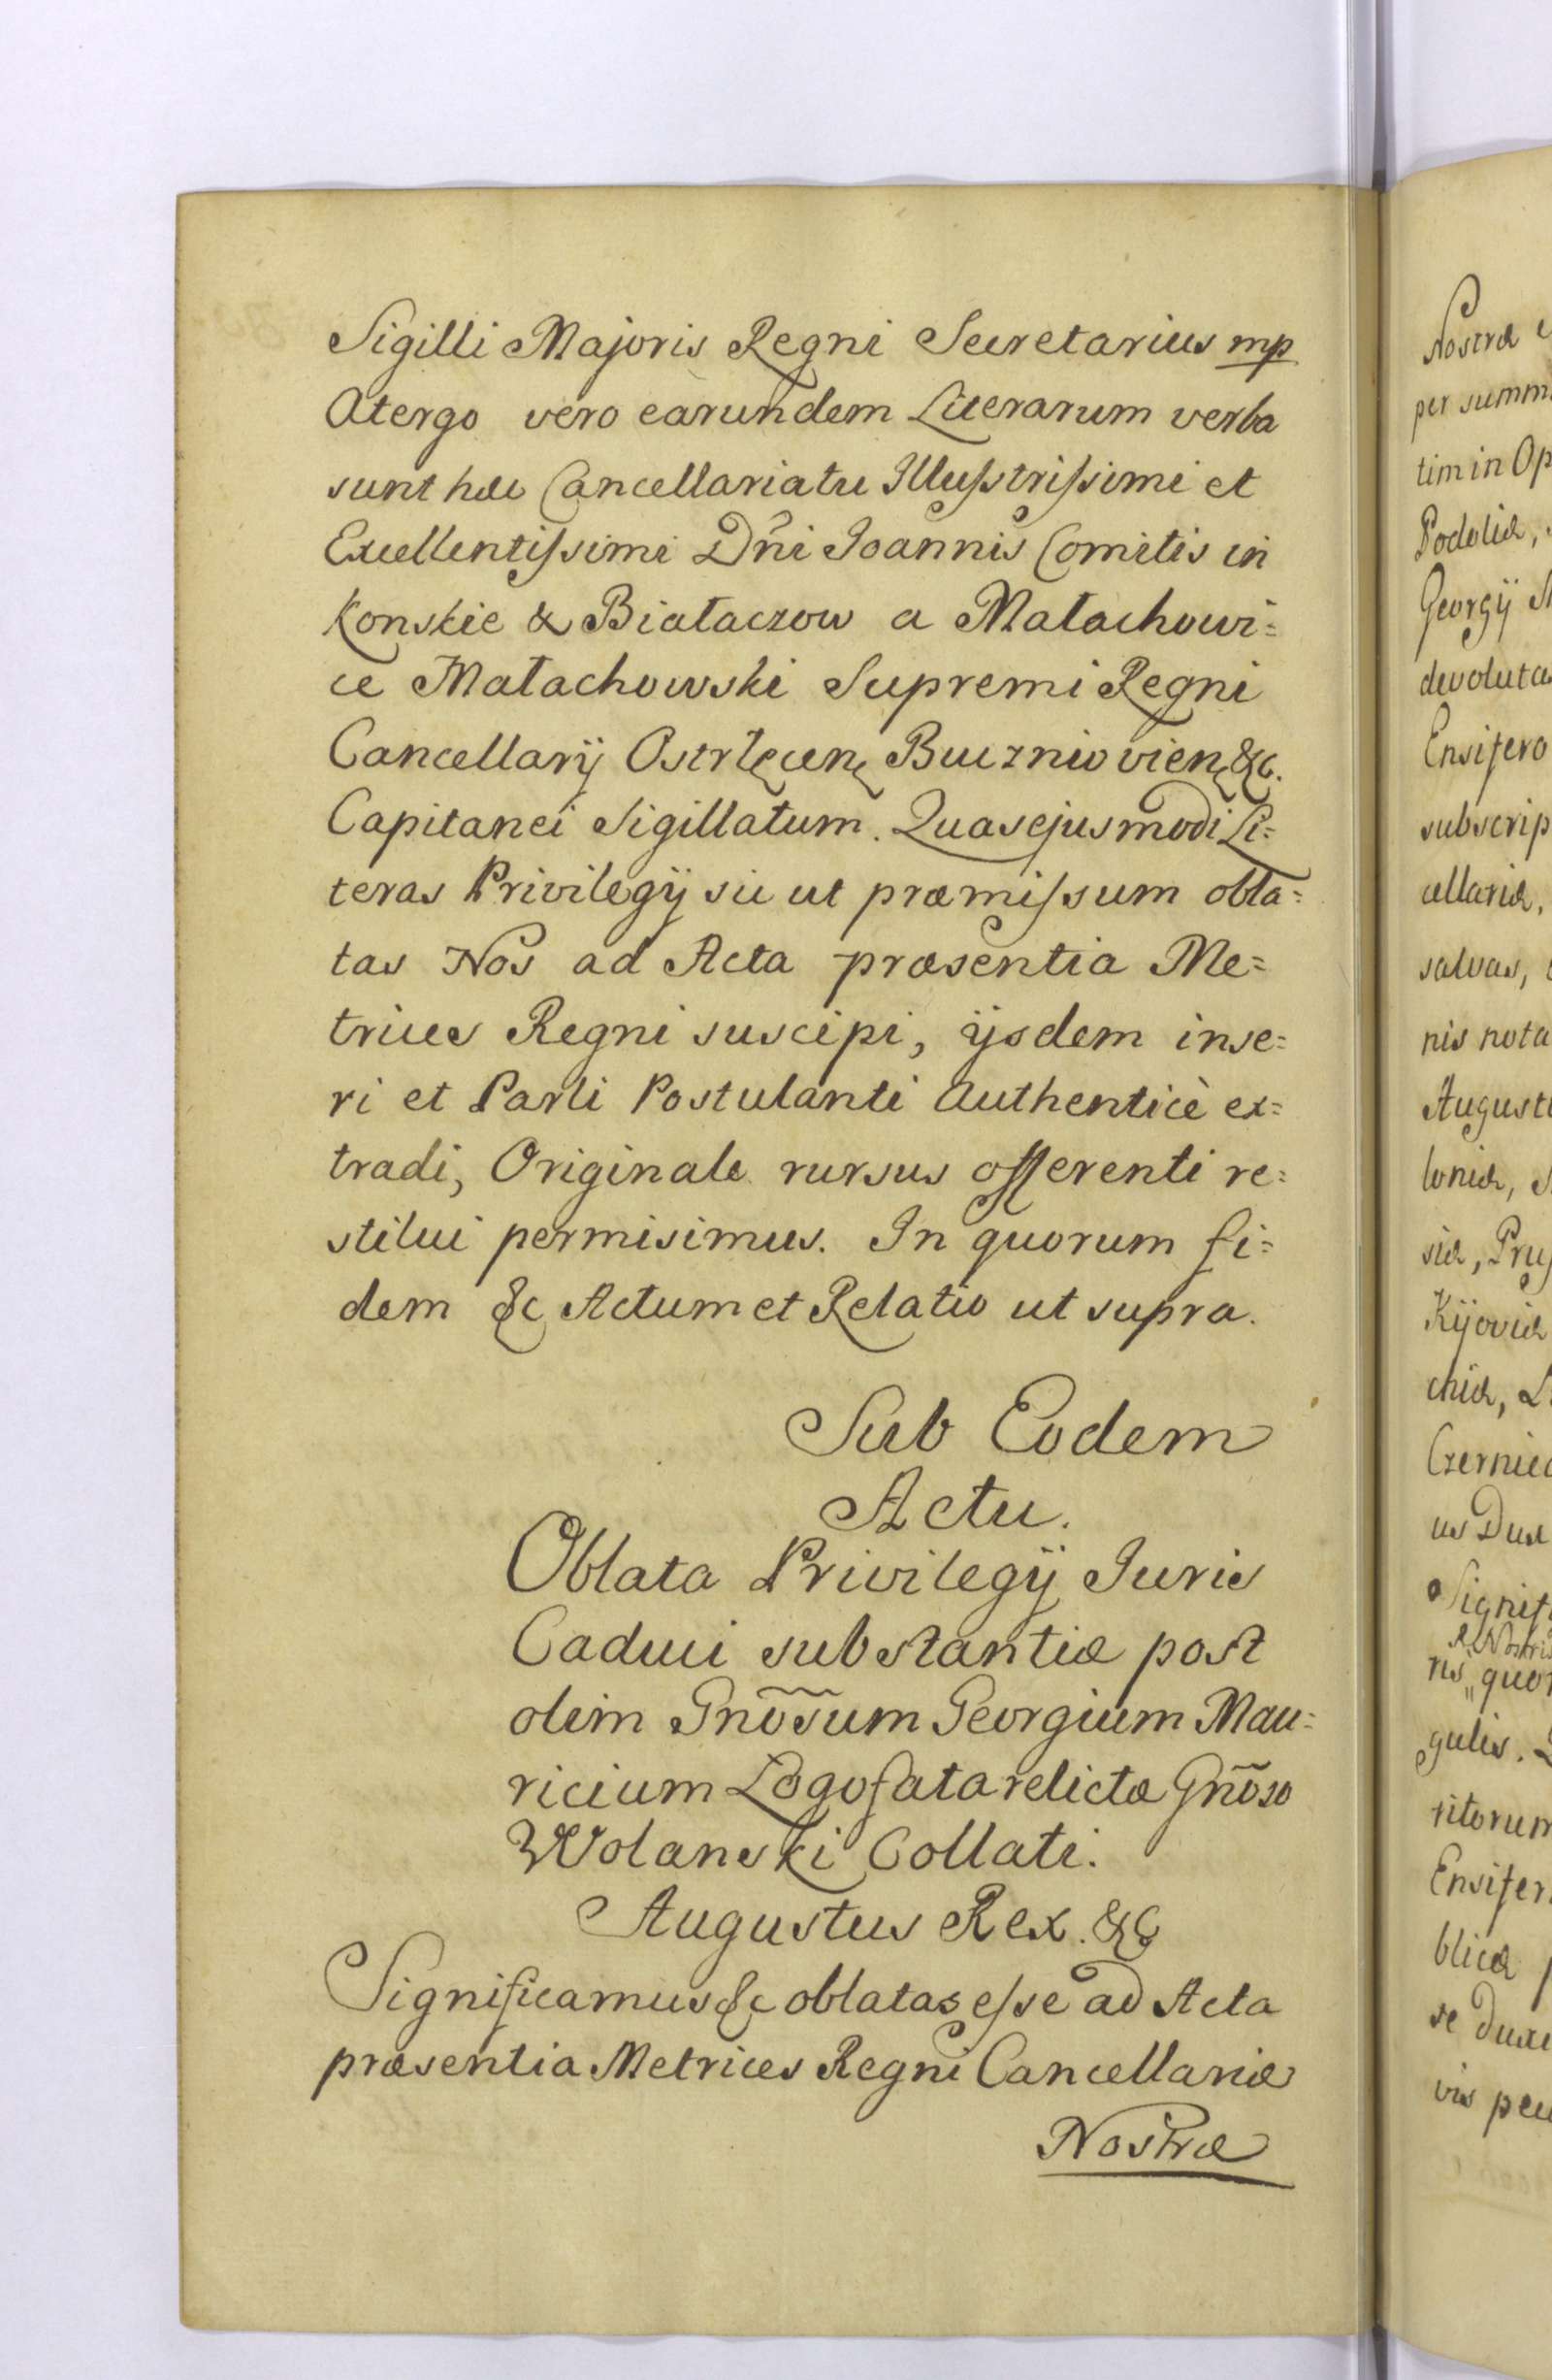 Sigilli Majoris Regni Secretarius mp
Atergo vero earundem Literarum verba
sunt hæc Cancellariatu Illusstrissimi et
Excellentissimi Dñi Joannis Comitis in
Konskie & Białaczow a Małachowi=
ce Małachowski Supremi Regni
Cancellarÿ Ostrłęcen Buczniovien &c.
Capitanei Sigillatum. Quasejusmodi Li=
teras Privilegÿ sic ut præmissum obla=
tas Nos ad Acta præsentia Me=
trices Regni suscipi, ÿsdem inse=
ri et Parti Postulanti Authenticè ex=
tradi, Originale rursus offerenti re=
stitui permisimus. In quorum fi=
dem &c Actum et Relatio ut supra.
Sub Eodem
Actu.
Oblata Privilegÿ Juris
Caduci substantiæ post
olim Gnõsum Georgium Mau=
ricium Logofata relictæ Gnõso
Wolanski Collati.
Augustus Rex. &c
Significamus &c oblatas esse ad Acta
præsentia Metrices Regni Cancellariæ
Nostræ
Nostræ
per summ
tim in Op
Podoliæ,
Georgÿ
devoluta
Ensifero
subscrip
cellariæ,
salvas,
nis nota
August
loniæ, S
siæ, Prus
Kÿoviæ
chiæ, L
Czernie
us Dux
Signif
Nostris
ris quor
gulis.
ritorum
Ensifer
blicæ p
se duxi
vis pec